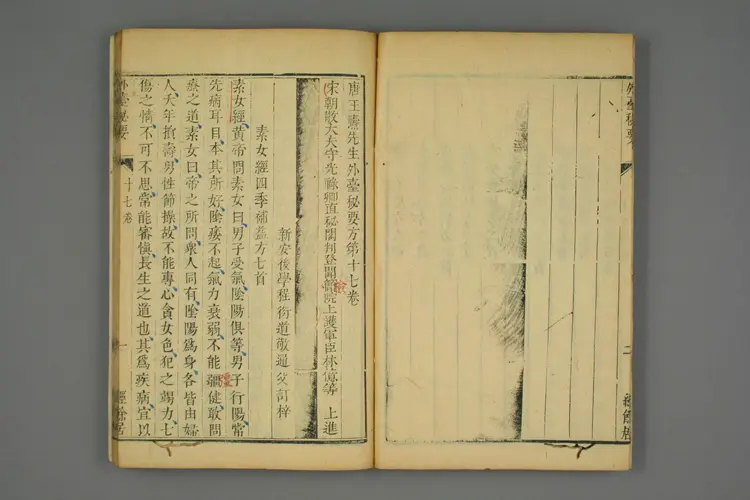 外臺秘要
二
經餘居
唐王燾先生外臺秘要方第十七卷
宋朝散大夫守光祿卿直秘閣判登聞檢院上護軍臣林億等 上進
新安後學程衍道敬通父訂梓
素女經四季補益方七首
素女經黃帝問素女曰男子受氣陰陽俱等男子行陽常
先病耳目本其所好陰痿不起氣力衰弱不能彊健敢問
療之道素女曰帝之所問衆人同有陰陽爲身各皆由婦
人夭年損壽男性節操故不能專心貪女色犯之竭力七
傷之情不可不思常能審慎長生之道也其爲疾病宜以
外臺秘要 十七卷 一 經餘居